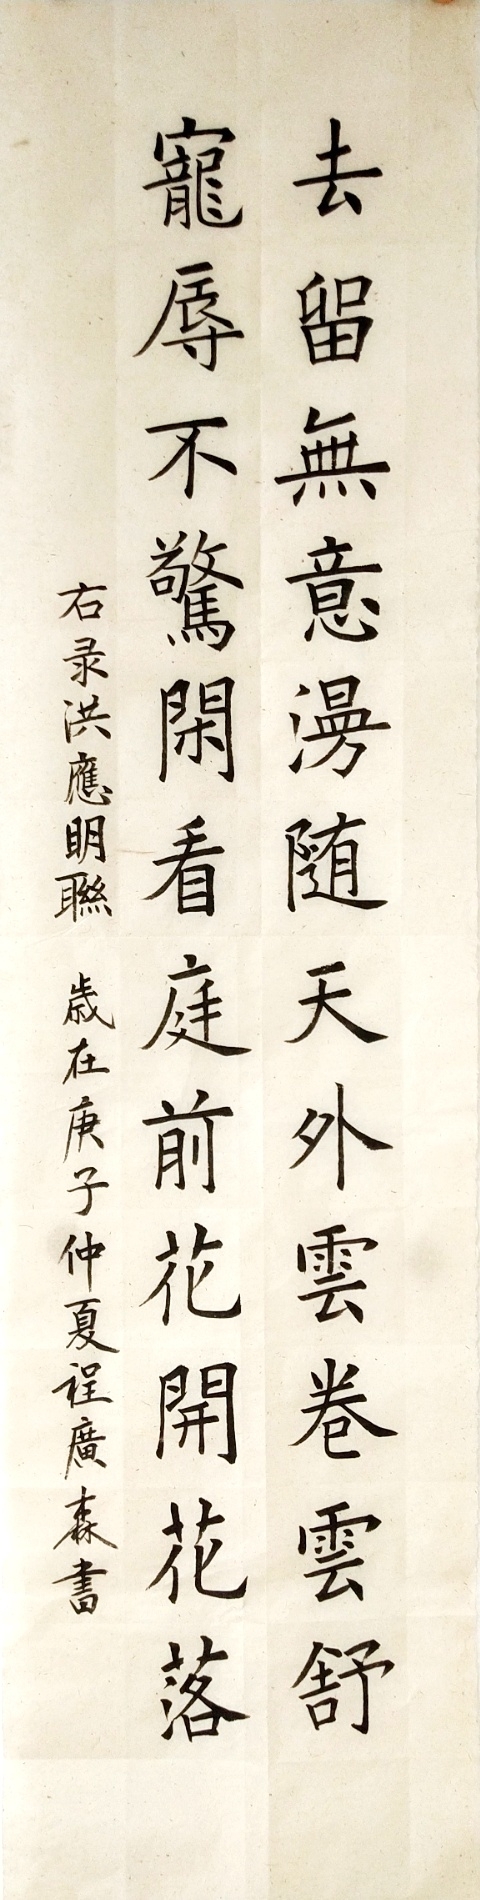 去留無意漫随天外雲卷雲舒
寵辱不驚閑看庭前花開花落
右录洪應明聯 歲在庚子仲夏程廣森書